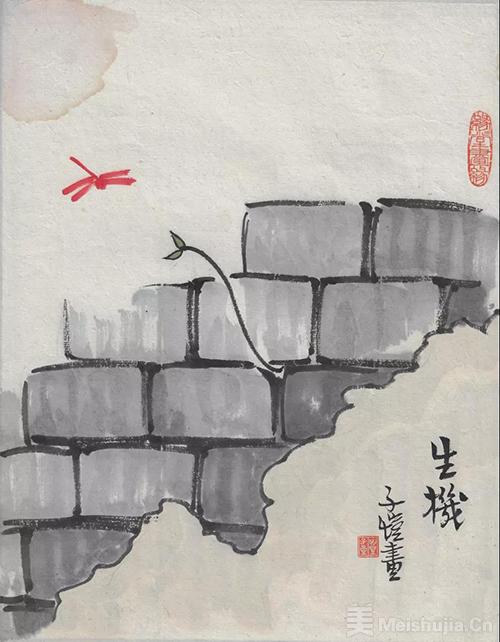 生機
子愷畫
美 Meishujia.Cn